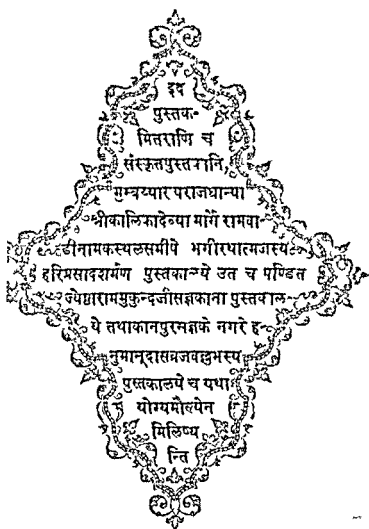 इद
पुस्तक-
मितराणि च
संस्कृतपुस्तकानि,
मुम्बय्यारपराजधान्या
श्रीकालिकादेव्या मार्गे रामवा-
डीनामकस्थलसमीपे भगीरथात्मजस्य
हरिप्रसादशर्मण पुस्तकालये उत च पण्डित
ज्येष्ठाराममुकुन्दजीसज्ञकाना पुस्तकाल-
ये तथा कानपुरसज्ञके नगरे ह-
नुमान्दासव्रजवल्लभस्य
पुस्तकालये च यथा
योग्यमौल्येन
मिलिष्य
न्ति